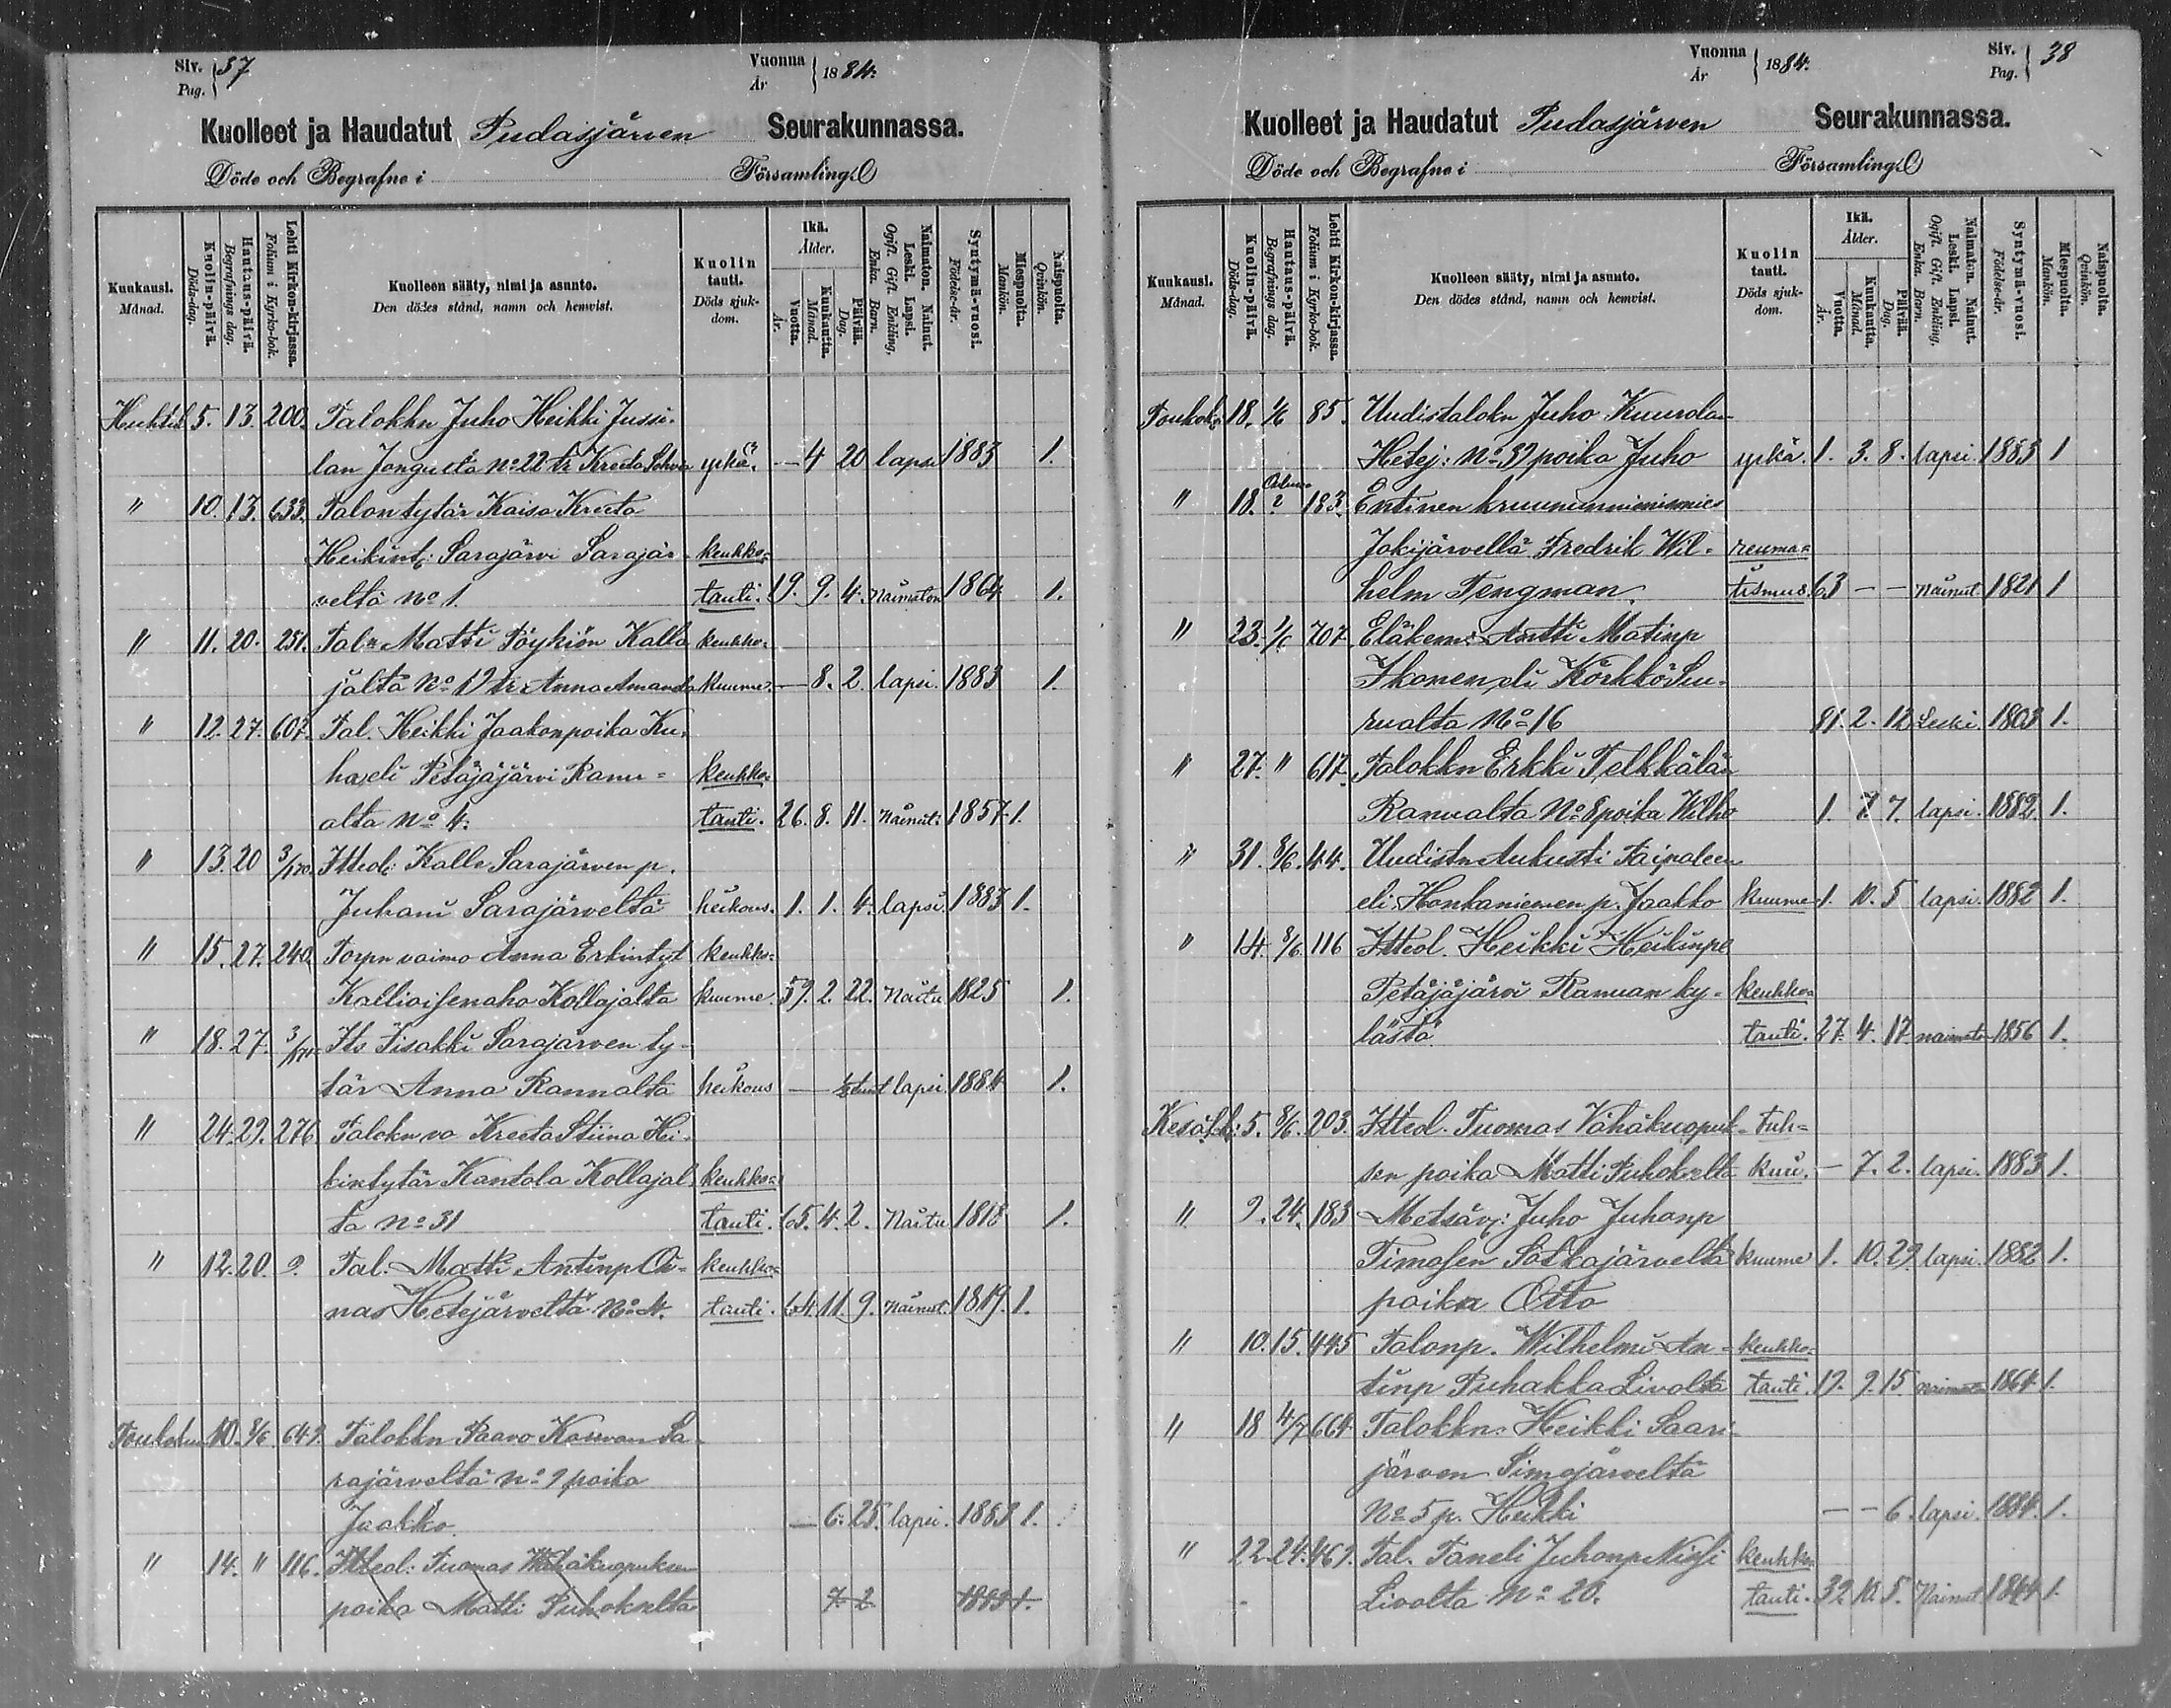 Siv. Pag. 37
Vuonna År 1884.
Kuolleet ja Haudatut Pudasjärven Seurakunnassa.
Döde och Begrafne i Församling.
Kuukausi. Månad.
Kuolin-päivä. Döds-dag.
Hautaus-päivä. Begrafnings dag.
Lehti Kirkon-kirjassa. Folium i Kyrko-bok.
Kuolleen sääty, nimi ja asunto. Den dödes stånd, namn och hemvist.
Kuolin tauti. Döds sjuk-dom.
Ikä. Ålder.
Vuotta. År.
Kuukautta. Månad.
Päivää. Dag.
Naimaton. Nainut. Leski. Lapsi. Ogift. Gift. Enkling, Enka. Barn.
Syntymä-vuosi. Födelse-år.
Miespuolta. Mankön.
Naispuolta. Qvinkön.
Huhtik 5. 13. 200. Talokkn Juho Heikki Jussi-
lan Jongusta No 22 tr Kreeta yskä. — 4 20 lapsi 1883 1.
" 10. 13. 633. Talontytär Kaisa Kreeta
Heikint: Sarajärvi Sarajär keuhko-
veltä No 1. tauti. 19. 9. 4. Naimaton 1864 1.
" 11. 20. 251. Tal Matti Pöykiön Kolla keuhko-
jalta No 12 tr Anna Amanda kuume. — 8. 2. lapsi. 1883 1.
" 12. 27. 607. Tal. Heikki Jaakonpoika Ku-
ha, eli Petäjäjärvi Ranu- keuhko-
alta No 4. tauti. 26. 8. 11. Nainut. 1857 1.
" 13. 20 3/170. Itteol: Kalle Sarajärven p.
Juhani Sarajärveltä heikous. 1. 1. 4. lapsi. 1883 1.
" 15. 27. 240. Torpn vaimo Anna Erkintyt keuhko-
Kollajalta kuume. 59. 2. 22. Naitu 1825 1.
" 18. 27. 3/171. Its Iisakki Sarajärven ty-
tär Anna Ranualta heikous — ½ tunt lapsi 1884 1.
" 24. 29. 276 Talokn va Kreeta Stiina Hei-
kintytär Kantola Kollajal keuhko-
ta No 31 tauti. 65. 4. 2. Naitu 1818 1.
" 12. 20. ?. Tal. Matti Antinp Oi- keuhko-
nas Hetejärveltä No 4. tauti. 64. 11. 9. Nainut. 1819. 1.
Toukokuu 10. 8/6 649. Talokkn Paavo Sa-
rajärveltä No 9 poika
Jaakko. — 6. 25. lapsi. 1883 1.
" 14. " 116. Ittteol: Tuomas Vähäkuopuksen
poika Matti Puhokselta 7. 2 1883 1.
Siv. Pag. 38
Vuonna År 1884.
Kuolleet ja Haudatut Pudasjärven Seurakunnassa.
Döde och Begrafne i Församling.
Kuukausi. Månad.
Kuolin-päivä. Döds-dag.
Hautaus-päivä. Begrafnings dag.
Lehti Kirkon-kirjassa. Folium i Kyrko-bok.
Kuolleen sääty, nimi ja asunto. Den dödes stånd, namn och hemvist.
Kuolin tauti. Döds sjuk-dom.
Ikä. Ålder.
Vuotta. År.
Kuukautta. Månad.
Päivää. Dag.
Naimaton. Nainut. Leski. Lapsi. Ogift. Gift. Enkling, Enka. Barn.
Syntymä-vuosi. Födelse-år.
Miespuolta. Mankön.
Naispuolta. Qvinkön.
Toukok: 18. 1/6 85. Uudistalokn Juho Kuurolan
Hetej: No 37 poika Juho yskä. 1. 3. 8. lapsi. 1883 1
" 18. ? 183. Entinen kruununnimismies
Jokijärvellä Fredrik Wil- reuma-
helm Tengman. tismus. 63 — — Nainut. 1821 1
" 23. 1/6 707. Eläkem: Antti Matinp
Ikonen eli Körkkö Suu-
rualta No 16 81. 2. 12 Leski. 1803 1.
" 27. " 617. Talokkn Erkki Telkkälän
Ranualta No 8 poika Wilho 1. 7. 7. lapsi. 1882 1.
" 31. 8/6. 44. Uudistn Aukusti Taipaleen
eli Honkaniemen p. Jaakko kuume 1. 10. 5 lapsi. 1882 1.
" 14. 8/6. 116 Itteol. Heikki Heikinp
Petäjäjärvi Ranuan ky- keuhko-
lästä. tauti. 27. 4. 17. naimaton 1856 1.
Kesäkk: 5. 8/6. 203. Itteol. Tuomas Vähäkuopuk- tuh-
sen poika Matti Puhokselta kuu. — 7. 2. lapsi. 1883 1.
" 9. 24. 183 Metsäv: Juho Juhonp
Timosen Sotkajärveltä kuume 1. 10. 29. lapsi. 1882 1.
poika Otto
" 10. 15. 445 Talonp. Wilhelmi An- keuhko-
tinp Puhakka Livolta tauti. 19. 9. 15. naimaton 1864 1.
" 18 4/7 664 Talokkn: Heikki Saari-
järven Simojärveltä
No 5 p. Heikki — — 6. lapsi. 1884. 1.
" 22. 24. 469. Tal. Taneli Juhonp Nissi keuhko-
Livolta No 20. tauti. 39. 10. 5. Nainut 1844 1.